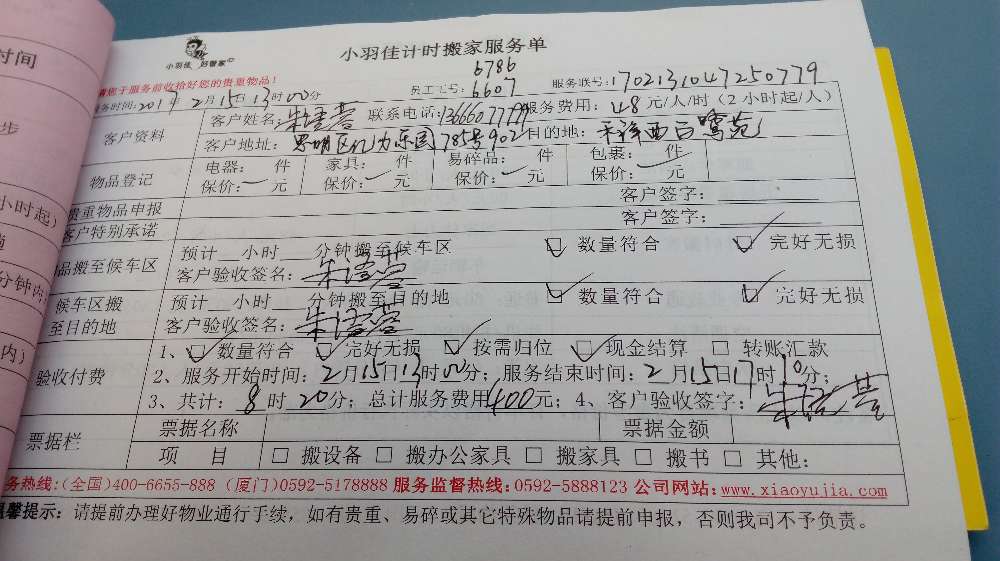 时间
步
小时起)
分钟内
内)
小羽佳 好管家
小羽佳计时搬家服务单
请您于服务前收拾好您的贵重物品!
6786
员工工号: 6607
服务联号: 1702131047250779
服务时间: 2017年2月15日13时00分
客户资料
客户姓名: 联系电话: 13666077799 服务费用: 48元/人/时 (2小时起/人)
客户地址: 思明区 785号902 目的地: 禾祥西白鹭苑
物品登记
电器: 件 家具: 件 易碎品: 件 包裹: 件
保价: 元 保价: 元 保价: 元 保价: 元
贵重物品申报 客户签字:
客户特别承诺 客户签字:
品搬至候车区
预计 小时 分钟搬至候车区 ☑ 数量符合 ☑ 完好无损
客户验收签名:
候车区搬至目的地
预计 小时 分钟搬至目的地 ☑ 数量符合 ☑ 完好无损
客户验收签名:
验收付费
1、☑ 数量符合 ☑ 完好无损 ☑ 按需归位 ☑ 现金结算 □ 转账汇款
2、服务开始时间: 2月15日13时00分; 服务结束时间: 2月15日17时10分;
3、共计: 8时20分; 总计服务费用400元; 4、客户验收签字:
票据栏
票据名称 票据金额
项 目 □ 搬设备 □ 搬办公家具 □ 搬家具 □ 搬书 □ 其他:
务热线:(全国)400-6655-888 (厦门)0592-5178888 服务监督热线:0592-5888123 公司网站: www.xiaoyujia.com
温馨提示: 请提前办理好物业通行手续,如有贵重、易碎或其它特殊物品请提前申报,否则我司不予负责。